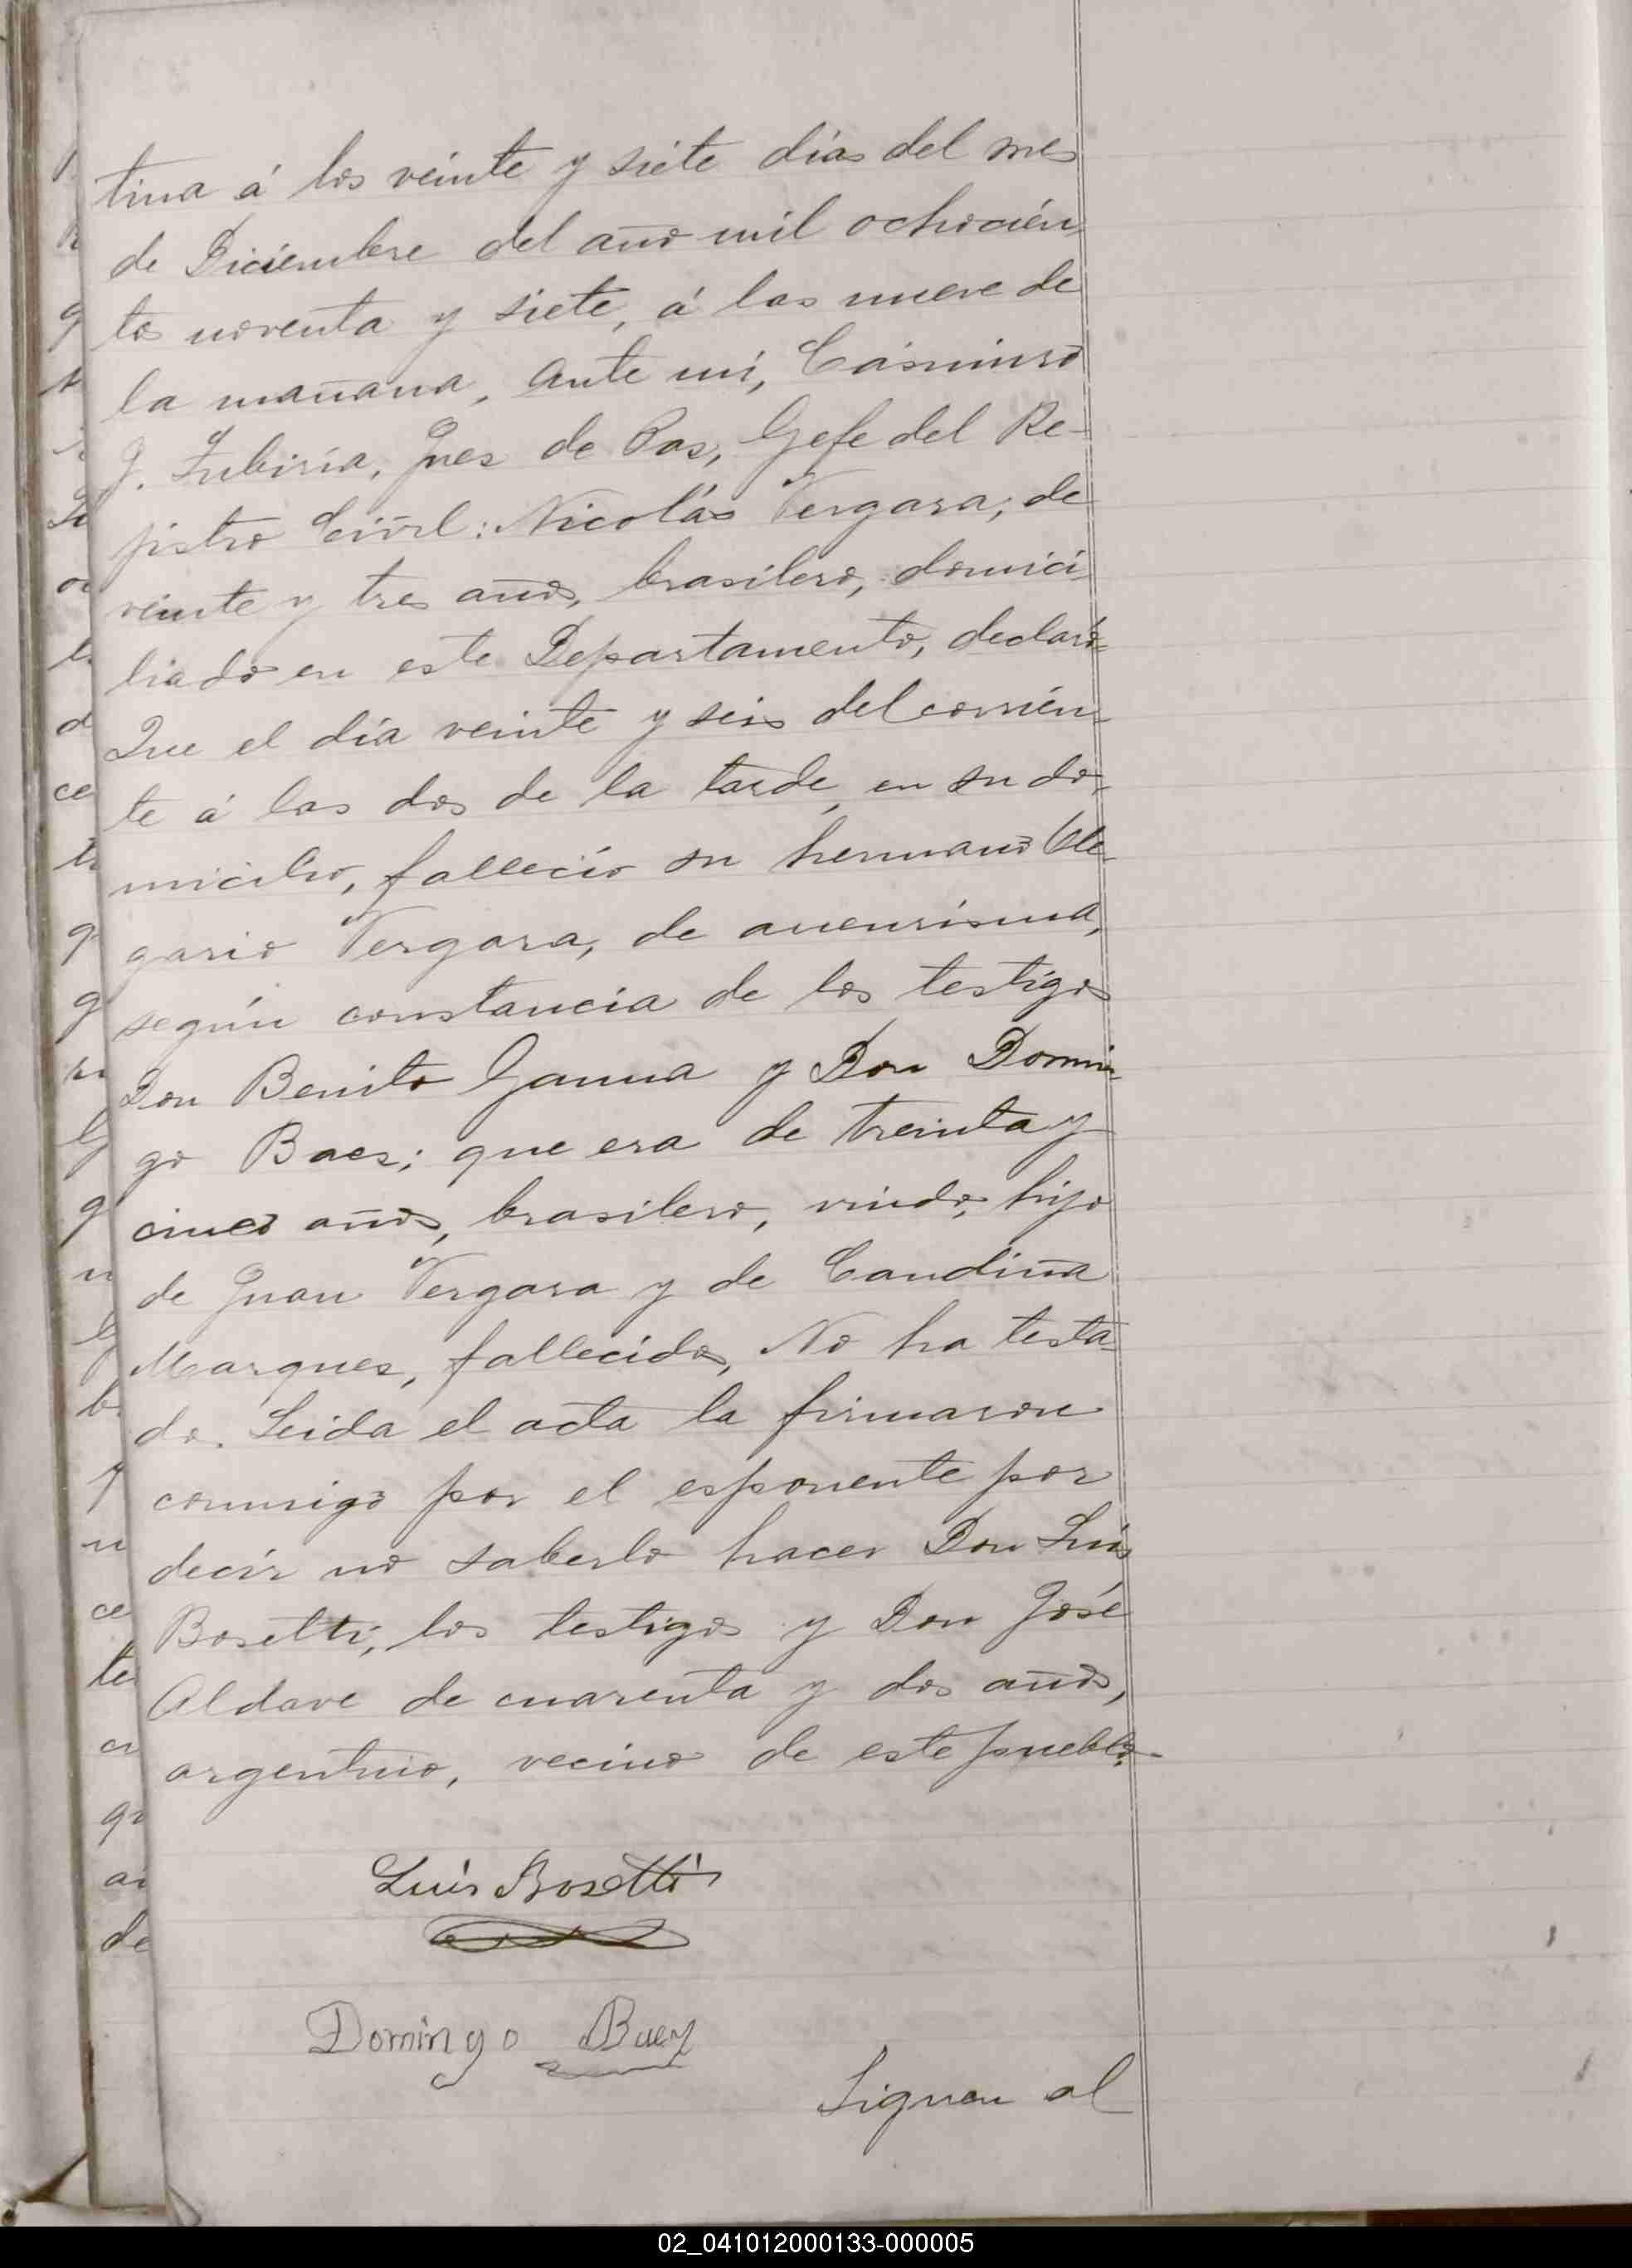 tina á los veinte y siete días del mes
de Diciembre del año mil ochocién
tos noventa y siete, á las nueve de
la mañana, ante mí, Cásimiro
J. Zubiría, Jues de Pas, Gefe del Re-
jistro Civil: Nicolás Vergara, de
veinte y tres años, brasilero, domici
liado en este Departamento, declaró
Que el día veinte y seis del corrien-
te á las dos de la tarde, en su do-
micilio, falleció su hermano Ole-
gario Vergara, de aneurisma,
según constancia de los testigos
Don Benito Gauna y Don Domin
go Baes; que era de treinta y
cinco años, brasilero, viudo, hijo
de Juan Vergara y de Candina
Marques, fallecidos, No ha testa-
do. Leida el acta la firmaron
conmigo por el esponente por
decir no saberlo hacer Don Luís
Bosetti, los testigos y Don José
Aldave de cuarenta y dos años,
argentino, vecino de este pueblo.
Luis Bosetti
Domingo Baez
Siguen al
02_041012000133-000005